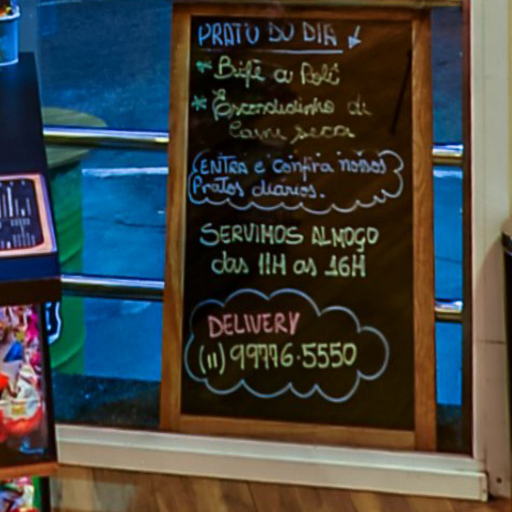 PRATO DO DIA
* Bife a Rolê
* Escondidinho de
Carne seca
ENTRA e confira nossos
Pratos diários.
SERVIMOS ALMOÇO
das 11H as 16H
DELIVERY
(11) 99776-5550